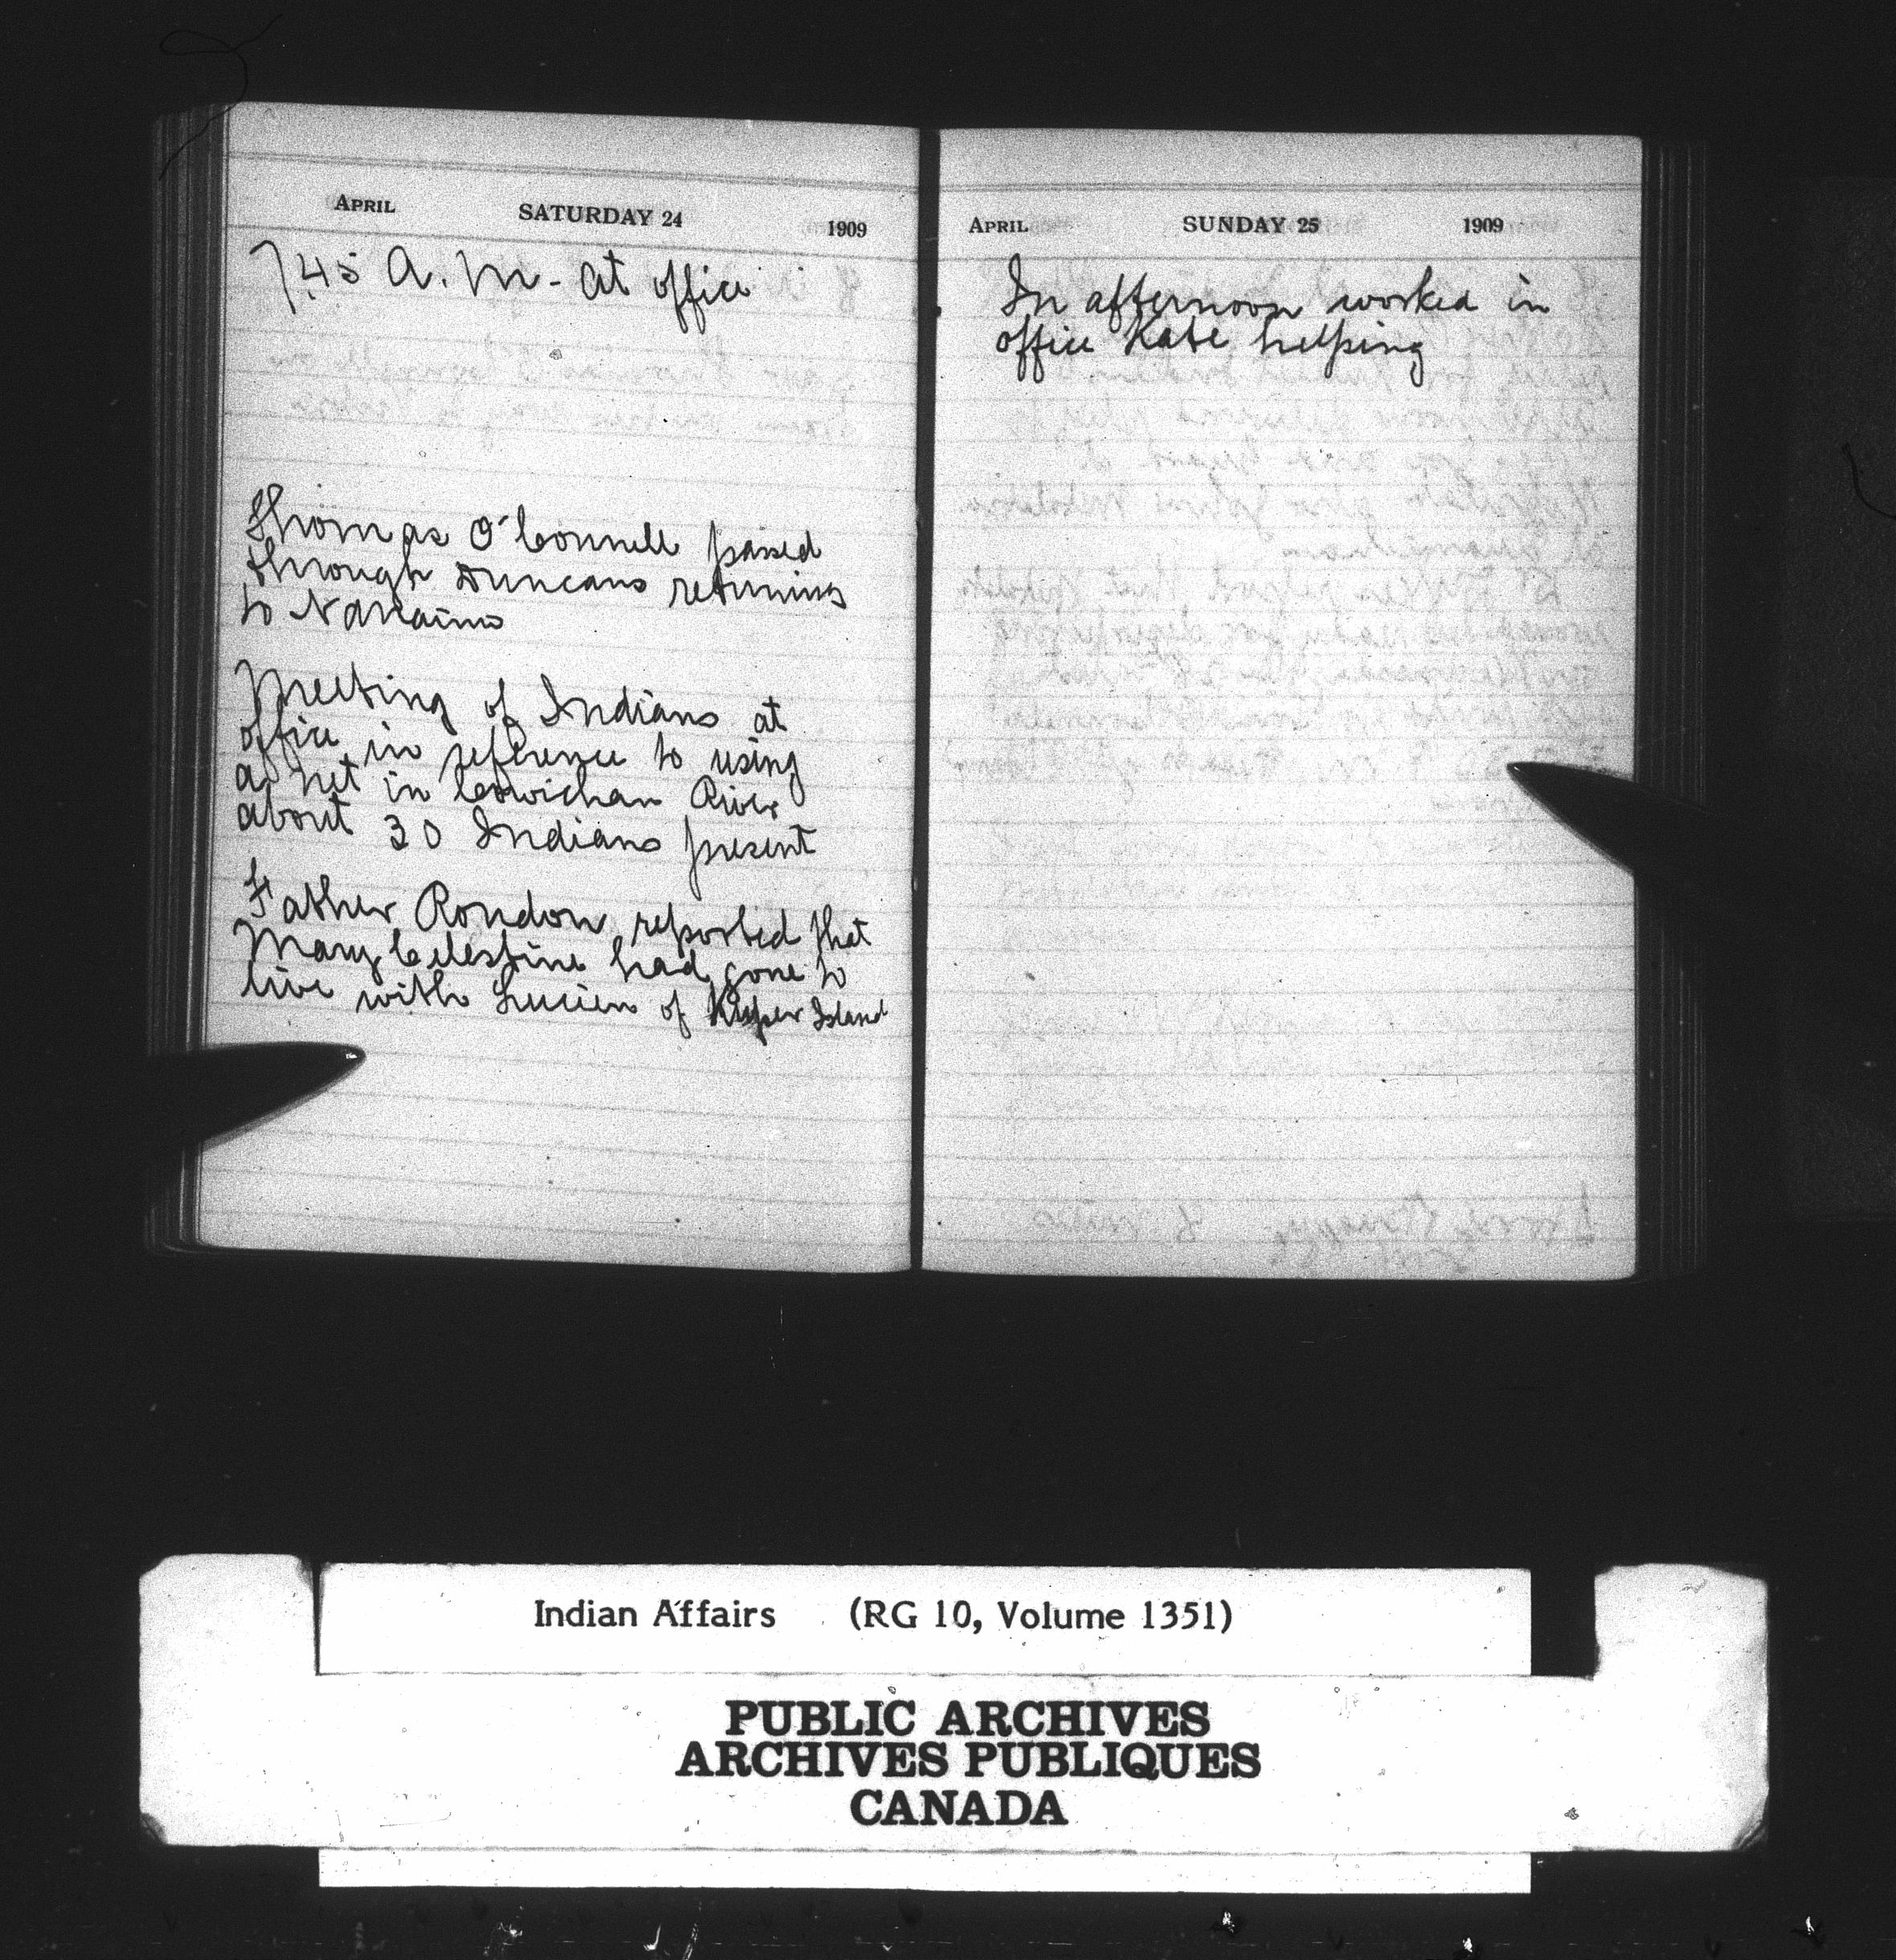 APRIL SATURDAY 24 1909
7.45 A.M- at office
Thomas O'Connell passed
through Duncans returning
to Nanaimo
Meeting of Indians at
office in reference to using
a net in Cowichan River
about 30 Indians present
Father Rondon reported that
Mary Celestine had gone to
live with Lucien of Kuper Island
APRIL SUNDAY 25 1909
In afternoon worked in
office Kate helping
Indian Affairs (RG 10, Volume 1351)
PUBLIC ARCHIVES
ARCHIVES PUBLIQUES
CANADA